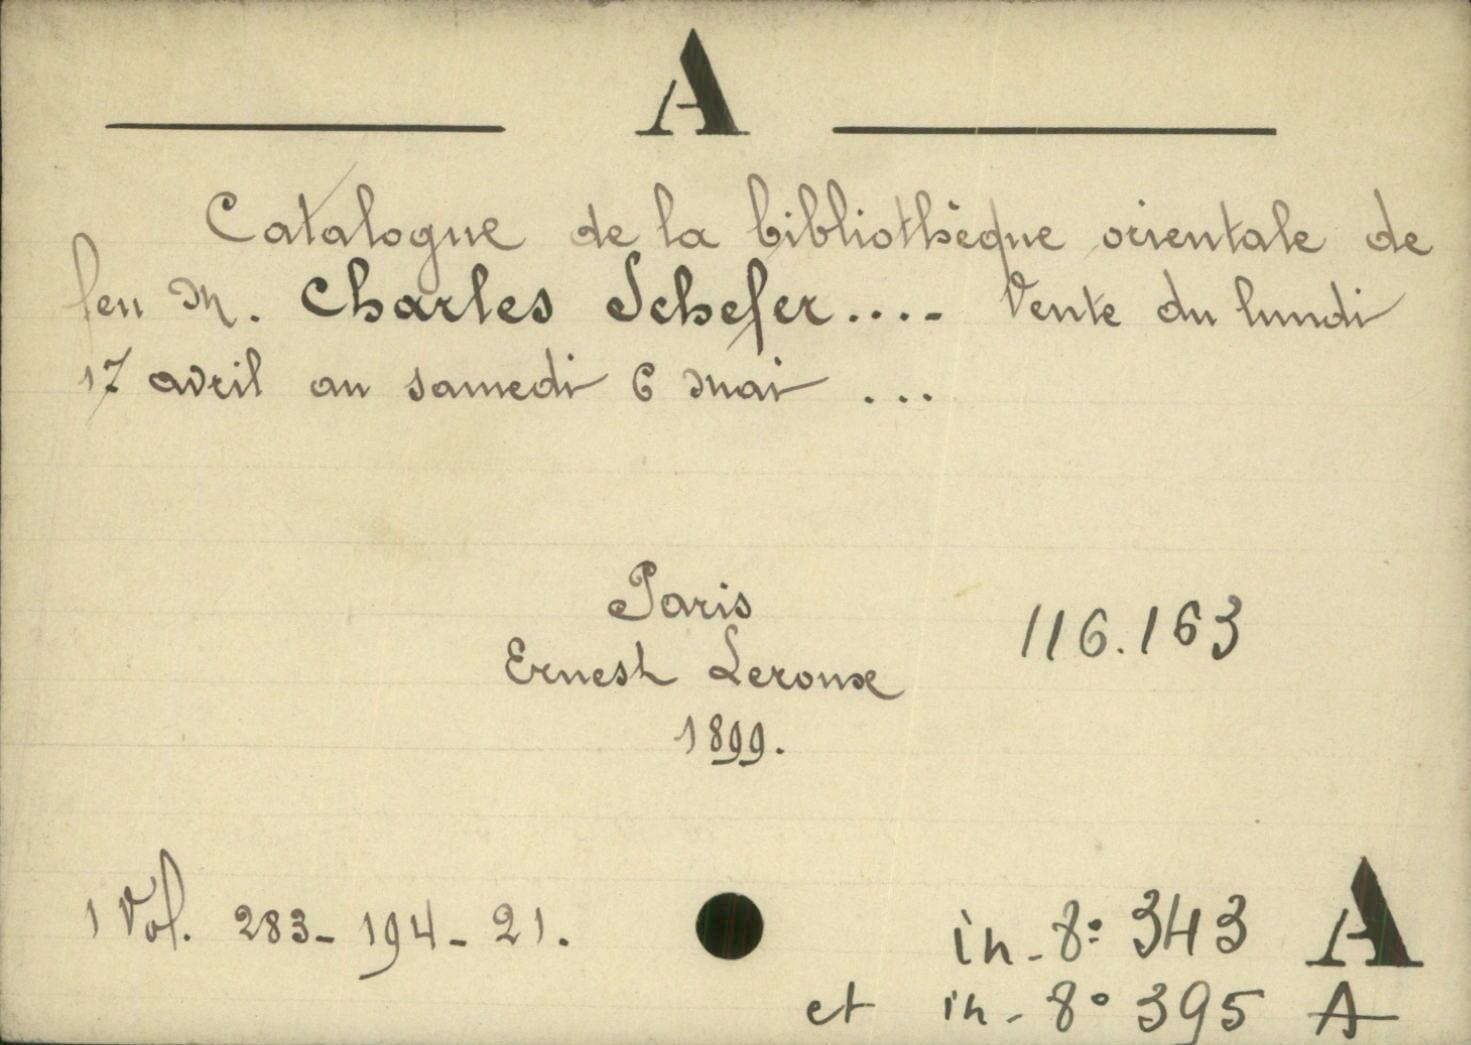 A
Catalogue de la bibliothèque orientale de
feu M. Charles Schefer.... Vente du lundi
17 avril au samedi 6 mai ...
Paris
116.163
Ernest Leroux
1899.
1 Vol. 283-194-21.
in-8º 343 A
et in-8º 395 A